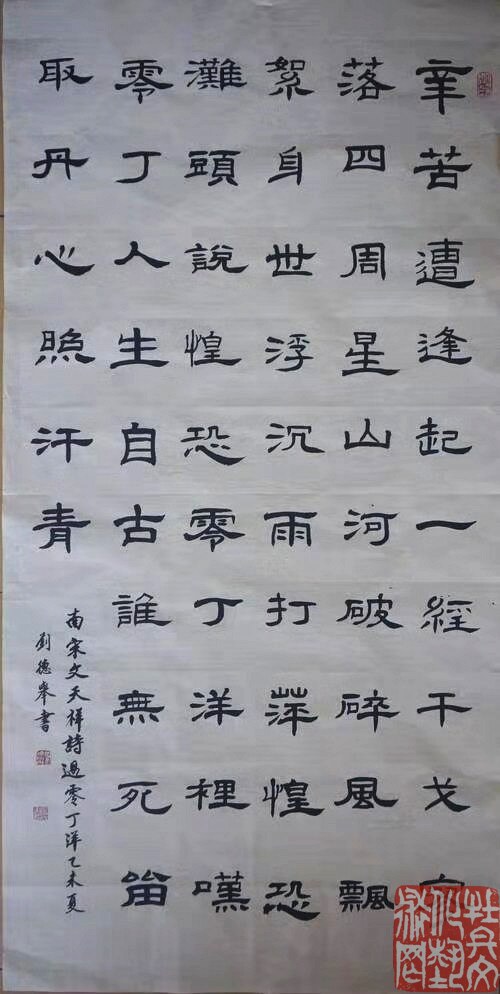 辛苦遭逢起一經干戈
落四周星山河破碎風飄
絮身世浮沉雨打萍惶恐
灘頭說惶恐零丁洋裡嘆
零丁人生自古誰無死留
取丹心照汗青
南宋文天祥詩過零丁洋乙未夏
劉德峯書